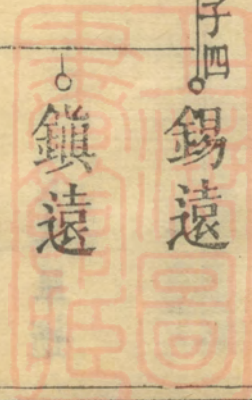 子四
錫遠
鎮遠